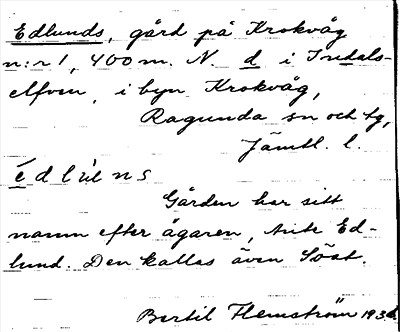 Edlunds, gård på Krokvåg
n:r 1, 400 m. N. d i Indals-
elfven, i byn Krokvåg,
Ragunda sn och tg,
Jämtl. l.
Gården har sitt
namn efter ägaren, Ed-
lund. Den kallas även Söst.
Bertil Hemström 193